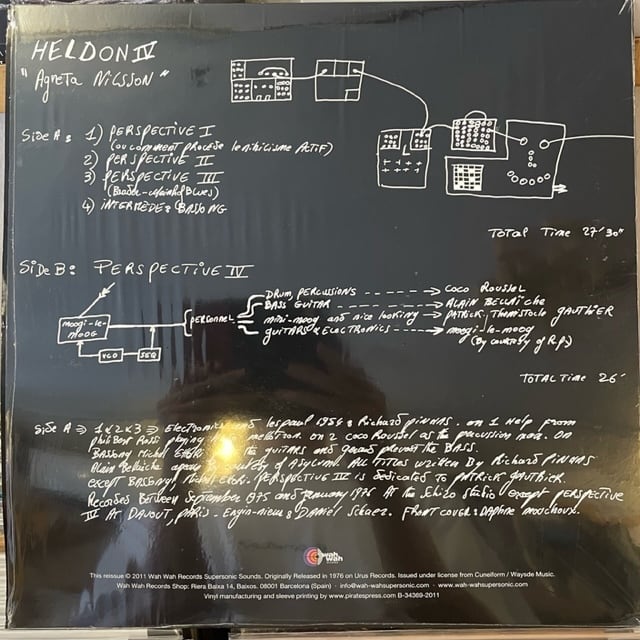 HELDON IV
"Agneta Nilsson"
Side A: 1) PERSPECTIVE I
(ou comment procède le nihilisme Actif)
2) PERSPECTIVE II
3) PERSPECTIVE III
(Baader-Meinhof Blues)
4) INTERMÈDE: BASSONG
TOTAL Time 27'30"
Side B: PERSPECTIVE IV
DRUM, PERCUSSIONS → COCO ROUSSEL
BASS GUITAR → ALAIN BELLAICHE
mini-moog and nice looking → PATRICK Themistocle GAUTHIER
GUITARS & ELECTRONICS → moogi-le-moog
(By courtesy of R.P.)
moogi-le-MOOG
PERSONNEL
VCO SEQ
TOTAL Time 26'
Side A ⇒ 1&2&3 ⇒ Electronics and les paul 1954: Richard PINHAS. on 1 Help from
philibert Rossi playing mellotron. on 2 Coco Roussel as the percussion man. On
BASSONG Michel Ettori the guitars and gerard prevost the BASS.
Alain Bellaiche appears By courtesy of Asylum. All TITLES written By Richard PINHAS
except BASSONG: Michel Ettori. PERSPECTIVE IV is dedicated to PATRICK Gauthier.
Recorded Between September 1975 and January 1976 At the Schizo studio except PERSPECTIVE
IV At DAVOUT, PARIS - Engin-nieus: Daniel FRONT cover: Daphné mouchoux.
wah wah
This reissue © 2011 Wah Wah Records Supersonic Sounds. Originally Released in 1976 on Urus Records. Issued under license from Cuneiform / Waysde Music.
Wah Wah Records Shop: Riera Baixa 14, Baixos. 08001 Barcelona (Spain) · info@wah-wahsupersonic.com · www.wah-wahsupersonic.com
Vinyl manufacturing and sleeve printing by www.piratespress.com B-34369-2011